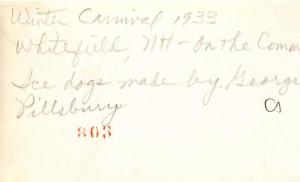 Winter Carnival, 1933
Whitefield, NH - On the Comm
Ice dogs made by George
Pillsbury
803